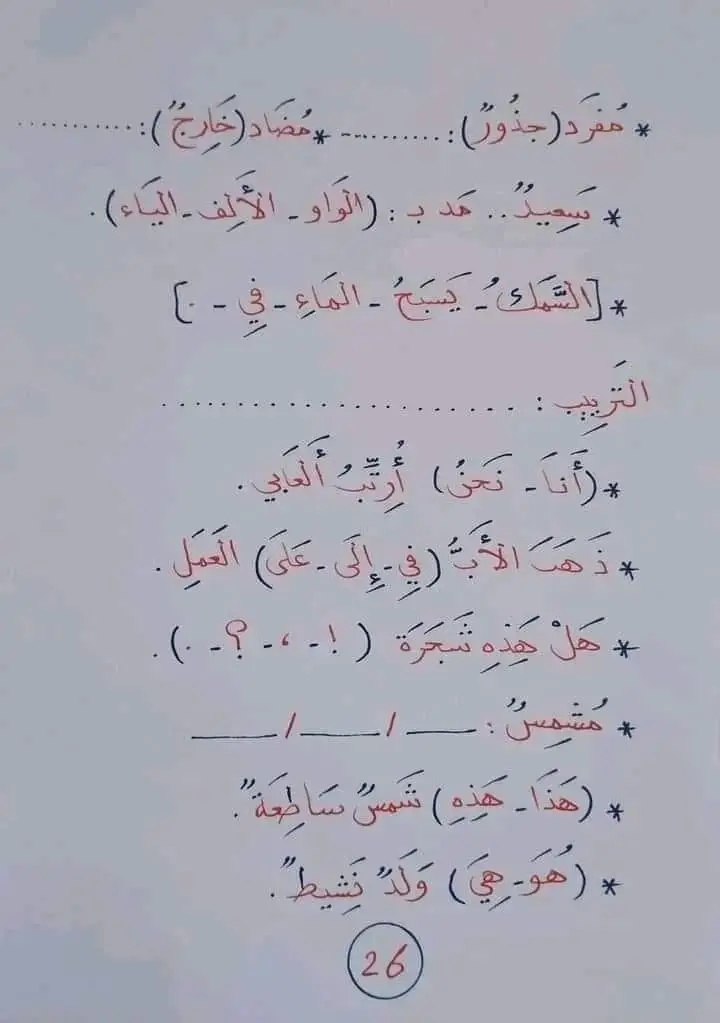 * مُفرَد (جذُورٌ) : .......... * مُضَاد (خَارِجٌ) : ............
* سَعِيدٌ .. مَد بـ : (الْوَاو - الْأَلِف - اليَاء) .
* [السَّمَكُ - يَسبَحُ - المَاءِ - فِي - .]
التَرِيِيب : ......................
* (أَنَا - نَحنُ) أُرتِّبُ أَلْعَابي .
* ذَهَبَ الْأَبُّ (فِي - إِلَى - عَلَى) الْعَمَلِ .
* هَلْ هَذِهِ شَجَرَة ( ! - ، - ؟ - .) .
* مُشمِسٌ : ــــ / ــــ / ــــ
* (هَذَا - هَذِهِ) شَمسٌ سَاطِعَةٌ .
* (هُوَ - هِيَ) وَلَدٌ نَشِيطٌ .
26